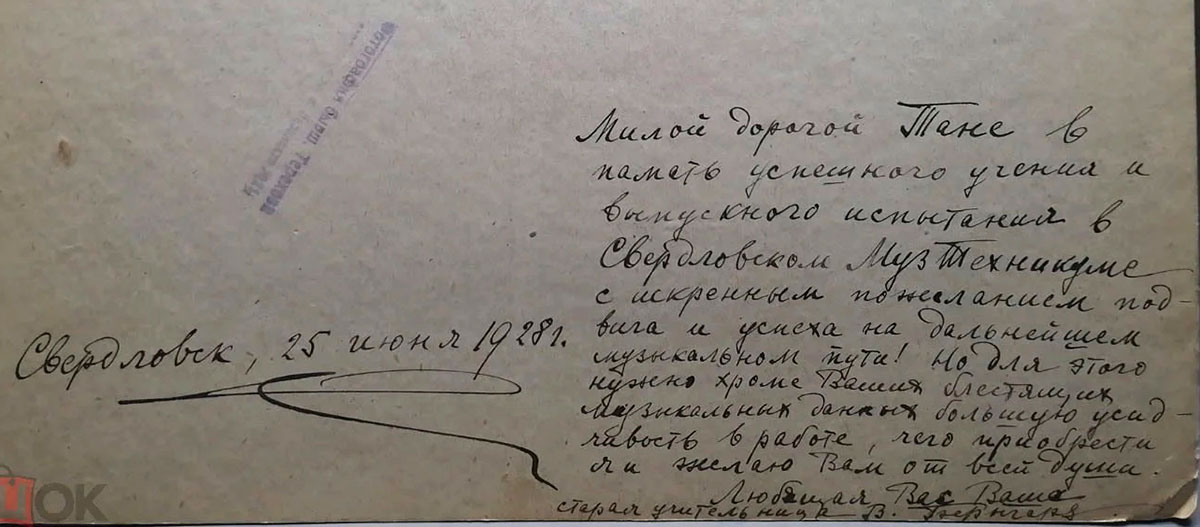 Милой дорогой Тане в
память успешного учения и
выпускного испытания в
Свердловском МузТехникуме
с искренным пожеланием под-
вига и успеха на дальнейшем
музыкальном пути! Но для этого
нужно кроме Ваших блестящих
музыкальных данных большую усид-
чивость в работе, чего приобрести
я и желаю Вам от всей души.
Любящая Вас Ваша
старая учительница В.
Свердловск, 25 июня 1928г.
Фотография бывш Терехова